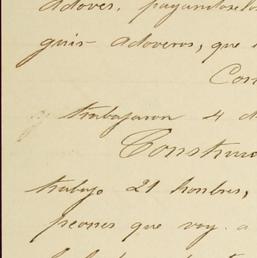 adoves, pagandoselos
guis- adoveros, que
Con
trabajaron 4 d
Construc
trabajo 21 honbres,
peones que voy. a